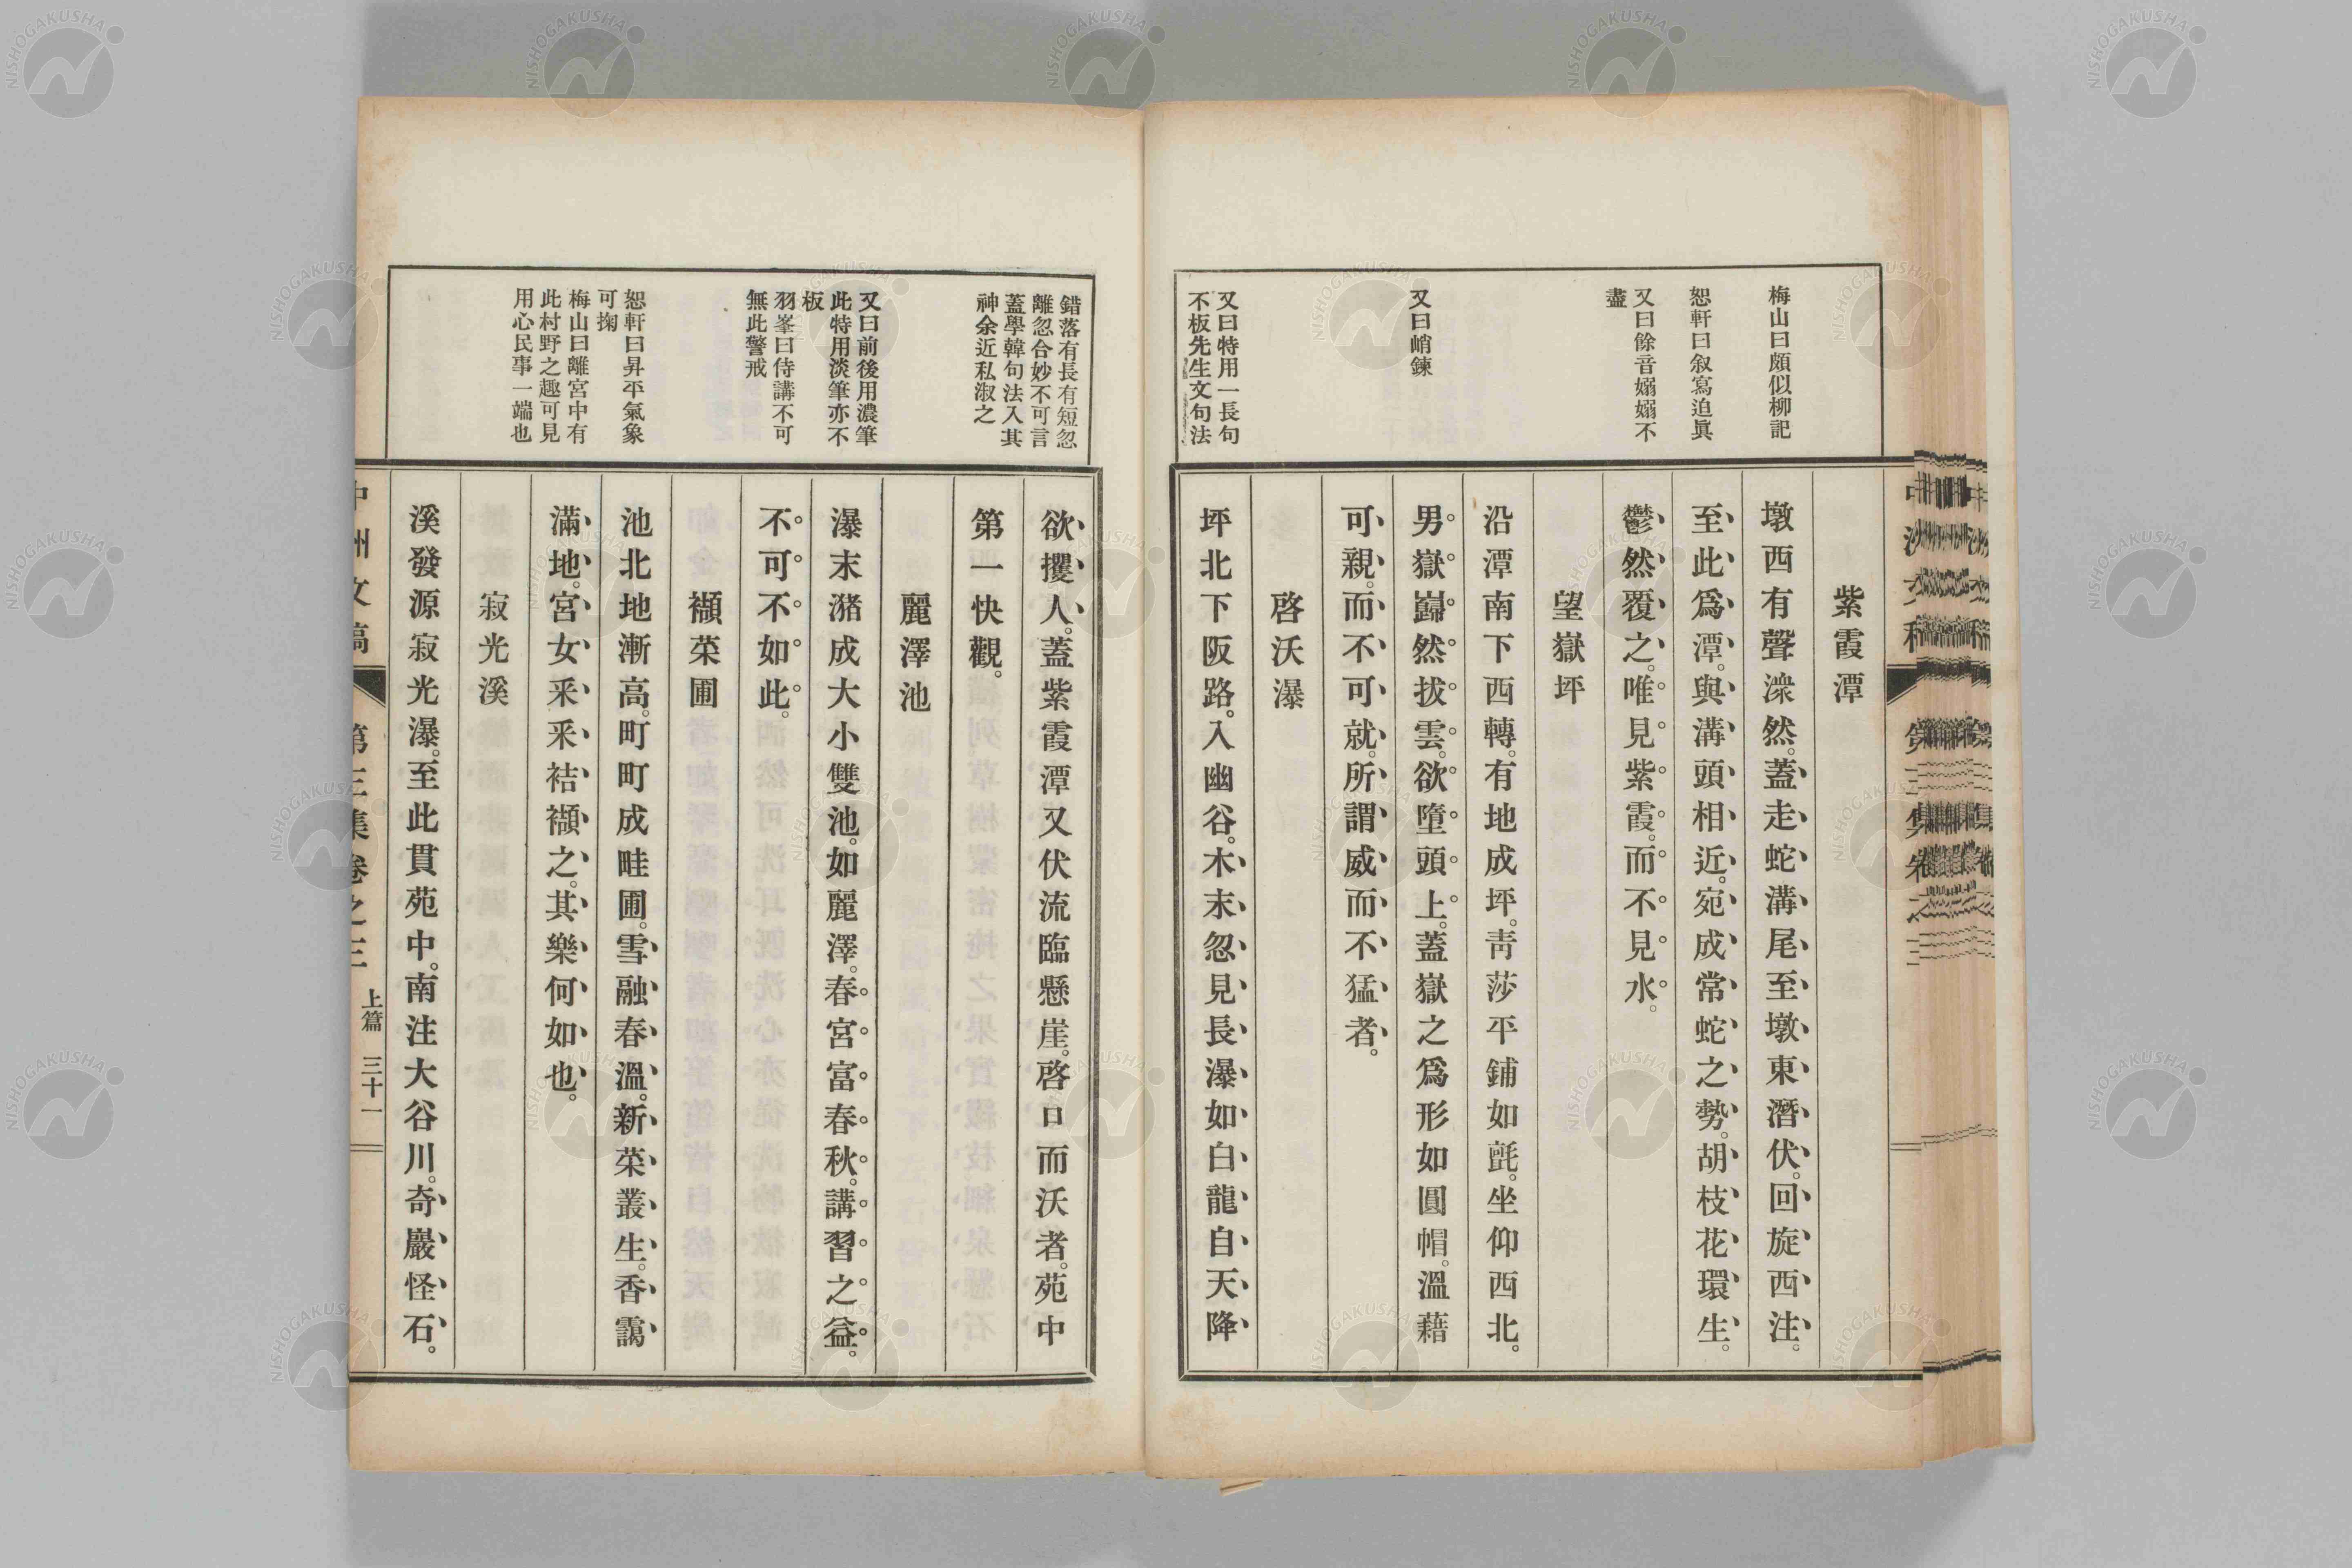 梅山曰頗似柳記
恕軒曰叙寫迫眞
又曰餘音嫋嫋不
盡
又曰峭鍊
又曰特用一長句
不板先生文句法
紫霞潭
墩西有聲濼然。蓋走蛇溝尾至墩東潛伏。回旋西注。
至此爲潭。與溝頭相近。宛成常蛇之勢。胡枝花環生。
鬱然覆之。唯見紫霞。而不見水。
望嶽坪
沿潭南下西轉。有地成坪。靑莎平鋪如氈。坐仰西北。
男嶽巋然拔雲。欲墮頭上。蓋嶽之爲形如圓帽。溫藉
可親。而不可就。所謂威而不猛者。
啓沃瀑
坪北下阪路。入幽谷。木末忽見長瀑如白龍自天降
錯落有長有短忽
離忽合妙不可言
蓋學韓句法入其
神余近私淑之
又曰前後用濃筆
此特用淡筆亦不
板
羽峯曰侍講不可
無此警戒
恕軒曰昇平氣象
可掬
梅山曰離宮中有
此村野之趣可見
用心民事一端也
欲攫人。蓋紫霞潭又伏流臨懸崖。啓口而沃者。苑中
第一快觀。
麗澤池
瀑末潴成大小雙池。如麗澤。春宮富春秋。講習之益。
不可不如此。
襭菜圃
池北地漸高。町町成畦圃。雪融春溫。新菜叢生。香靄
滿地。宮女采采袺襭之。其樂何如也。
寂光溪
溪發源寂光瀑。至此貫苑中。南注大谷川。奇巖怪石。
中洲文稿 第三集卷之三 上篇 三十一